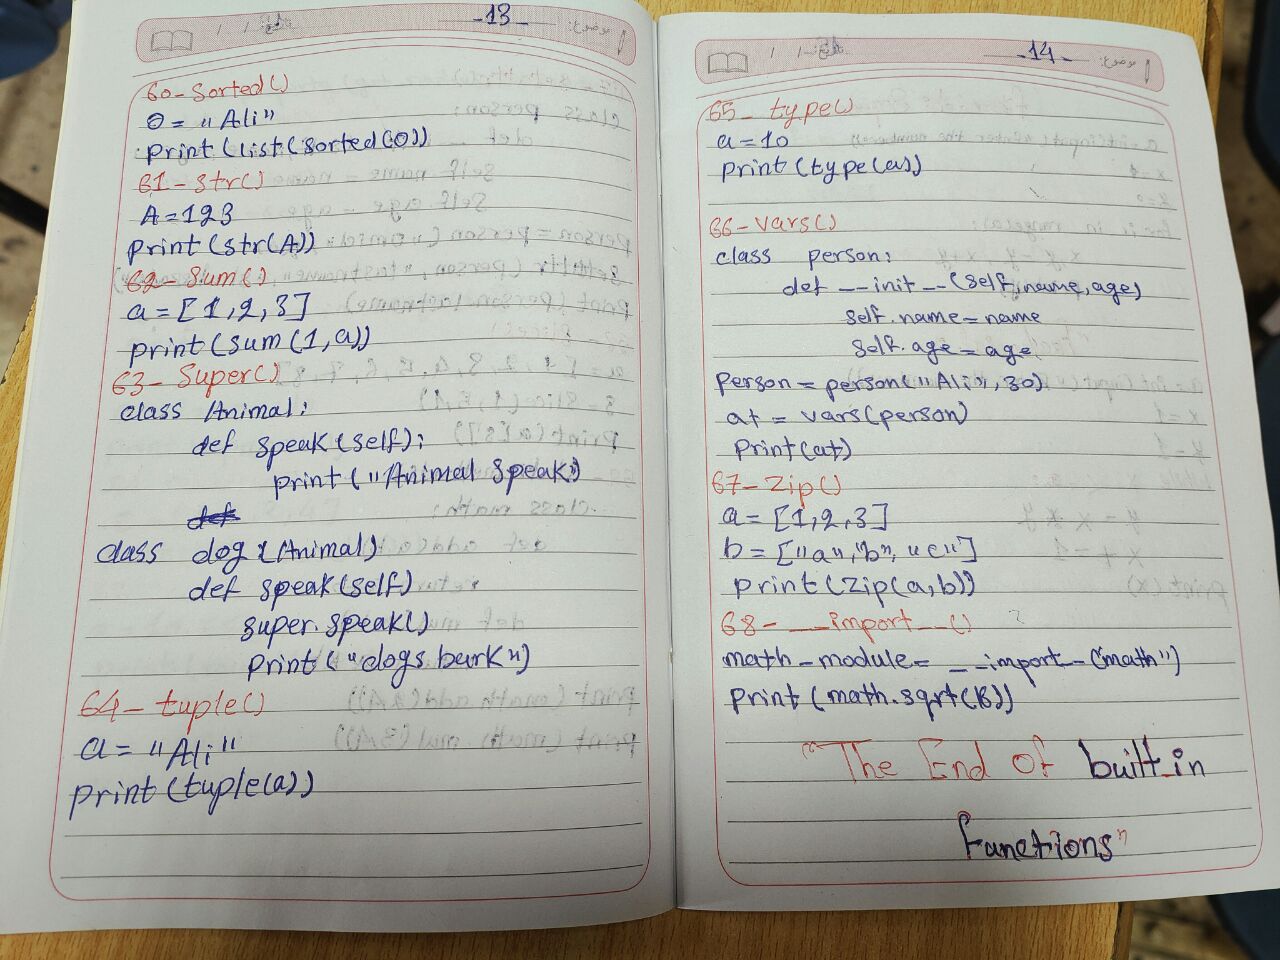 -13-
موضوع:
تاریخ: / /
60- Sorted()
O = "Ali"
print (list(sorted(O))
61- str()
A=123
print (str(A))
62- Sum()
a=[1,2,3]
print (sum (1,a))
63- Super()
class Animal:
def speak (self):
print ("Animal speak")
def
class dog (Animal)
def speak (self)
super. speak()
print ("dogs bark")
64- tuple()
a= "Ali"
print (tuple(a))
-14-
موضوع:
تاریخ: / /
65- type()
a=10
print (type(a))
66- vars()
class person:
def __init__(self,name,age)
self.name=name
self.age=age
person = person("Ali",30)
at = vars(person)
print(at)
67- Zip()
a=[1,2,3]
b=["a","b","c"]
print(zip(a,b))
68- __import__()
math-module= __import-(math")
print (math.sqrt(16))
"The End Of built_in
functions"